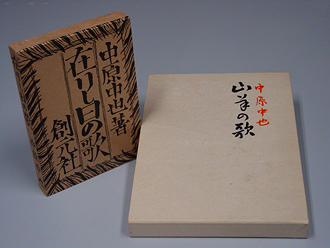 中原中也著
在りし日の歌
創元社
中原中也
山羊の歌